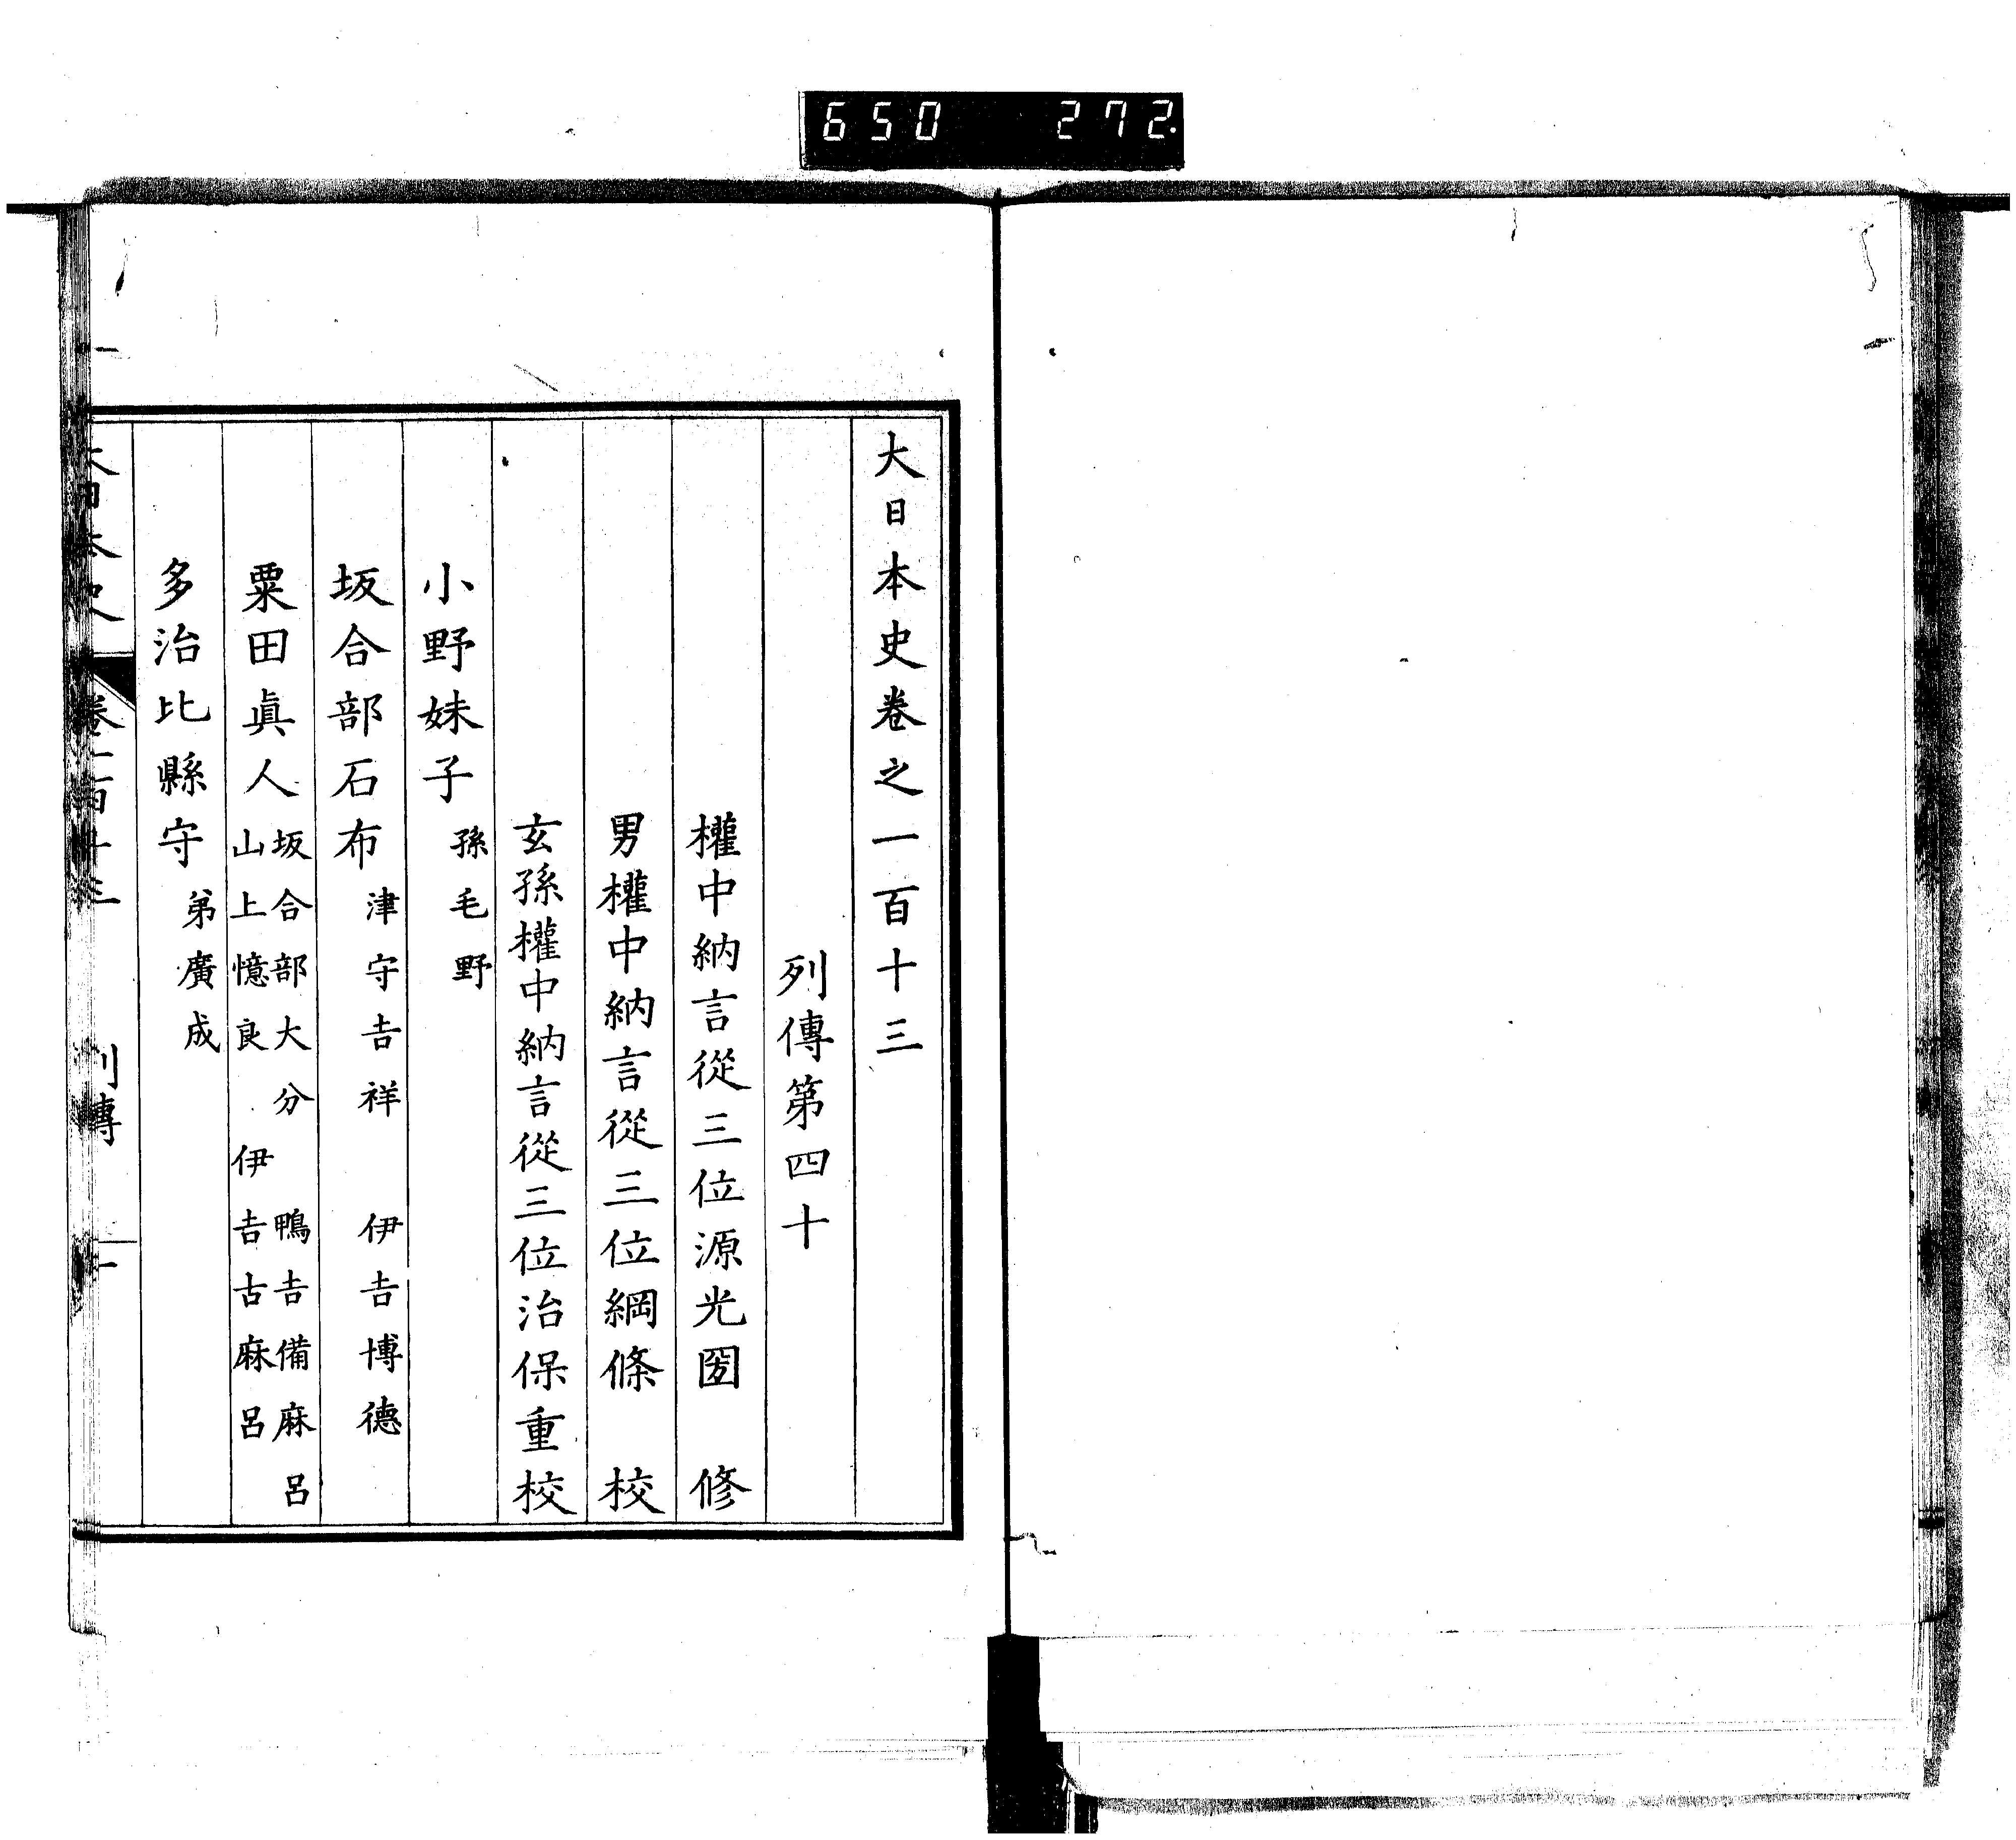 650 272.
大日本史卷之一百十三
列傳第四十
權中納言從三位源光圀 修
男權中納言從三位綱條 校
玄孫權中納言從三位治保重校
小野妹子 孫毛野
坂合部石布 津守吉祥 伊吉博德
粟田眞人 坂合部大分 鴨吉備麻呂
山上憶良 伊吉古麻呂
多治比縣守 弟廣成
大日本史 卷一百十三 列傳 一